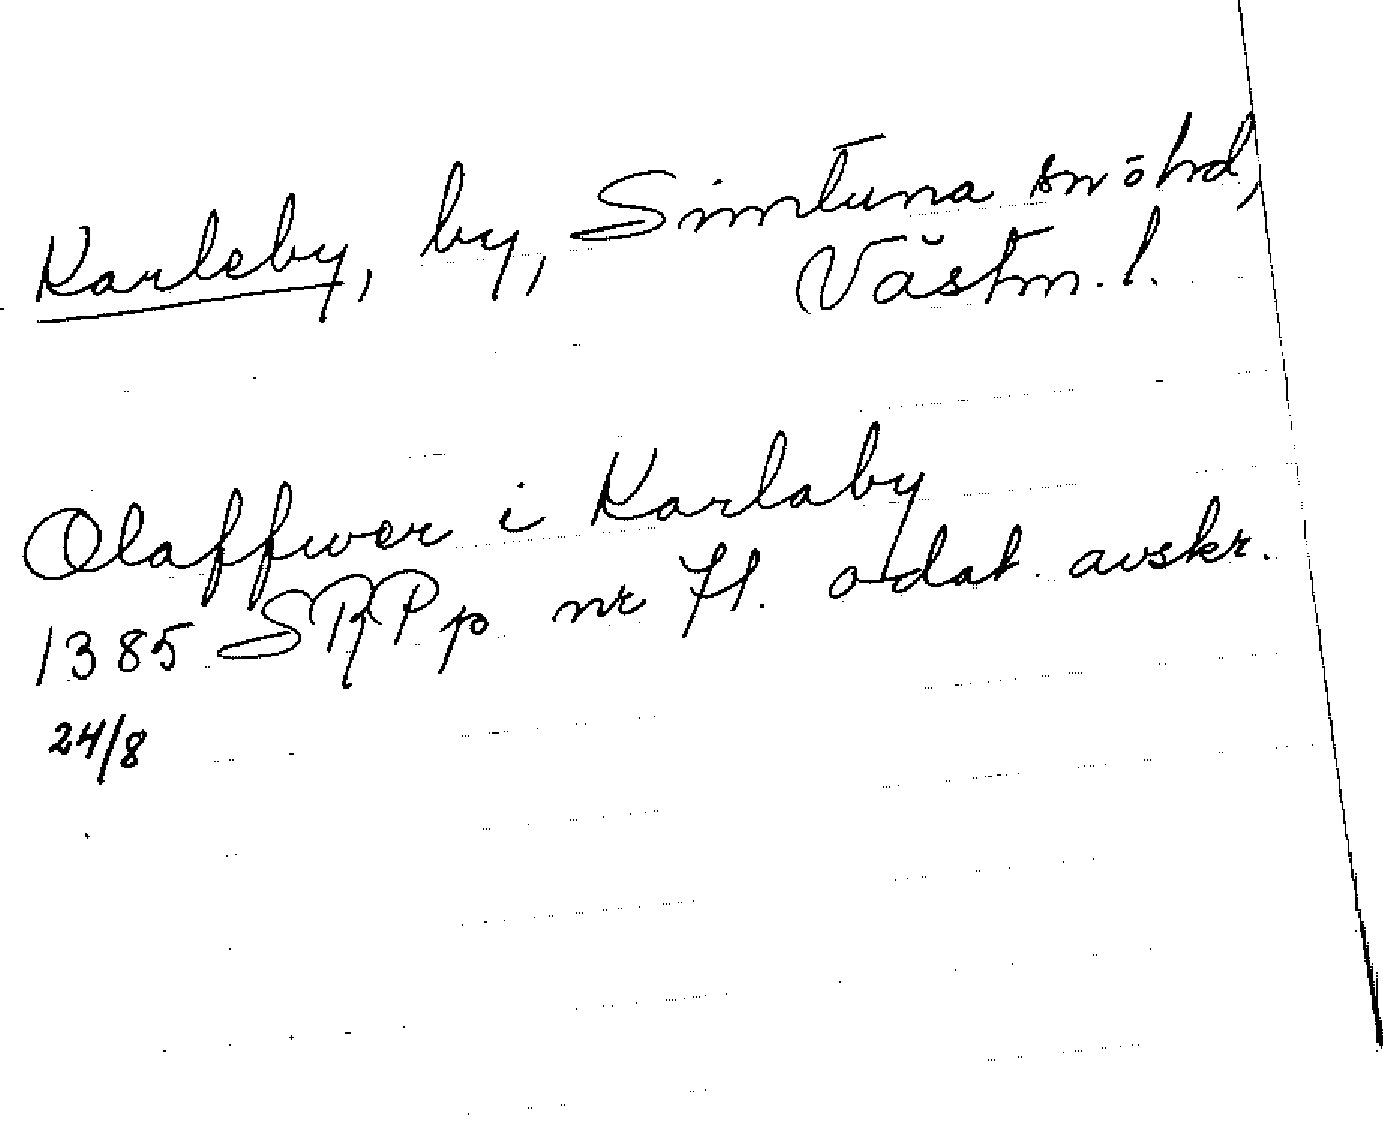 Karleby, by, Simtuna sn o hd,
Västm. l.
Olaffwer i Karlaby
1385 SRPp nr 71. odat. avskr.
24/8